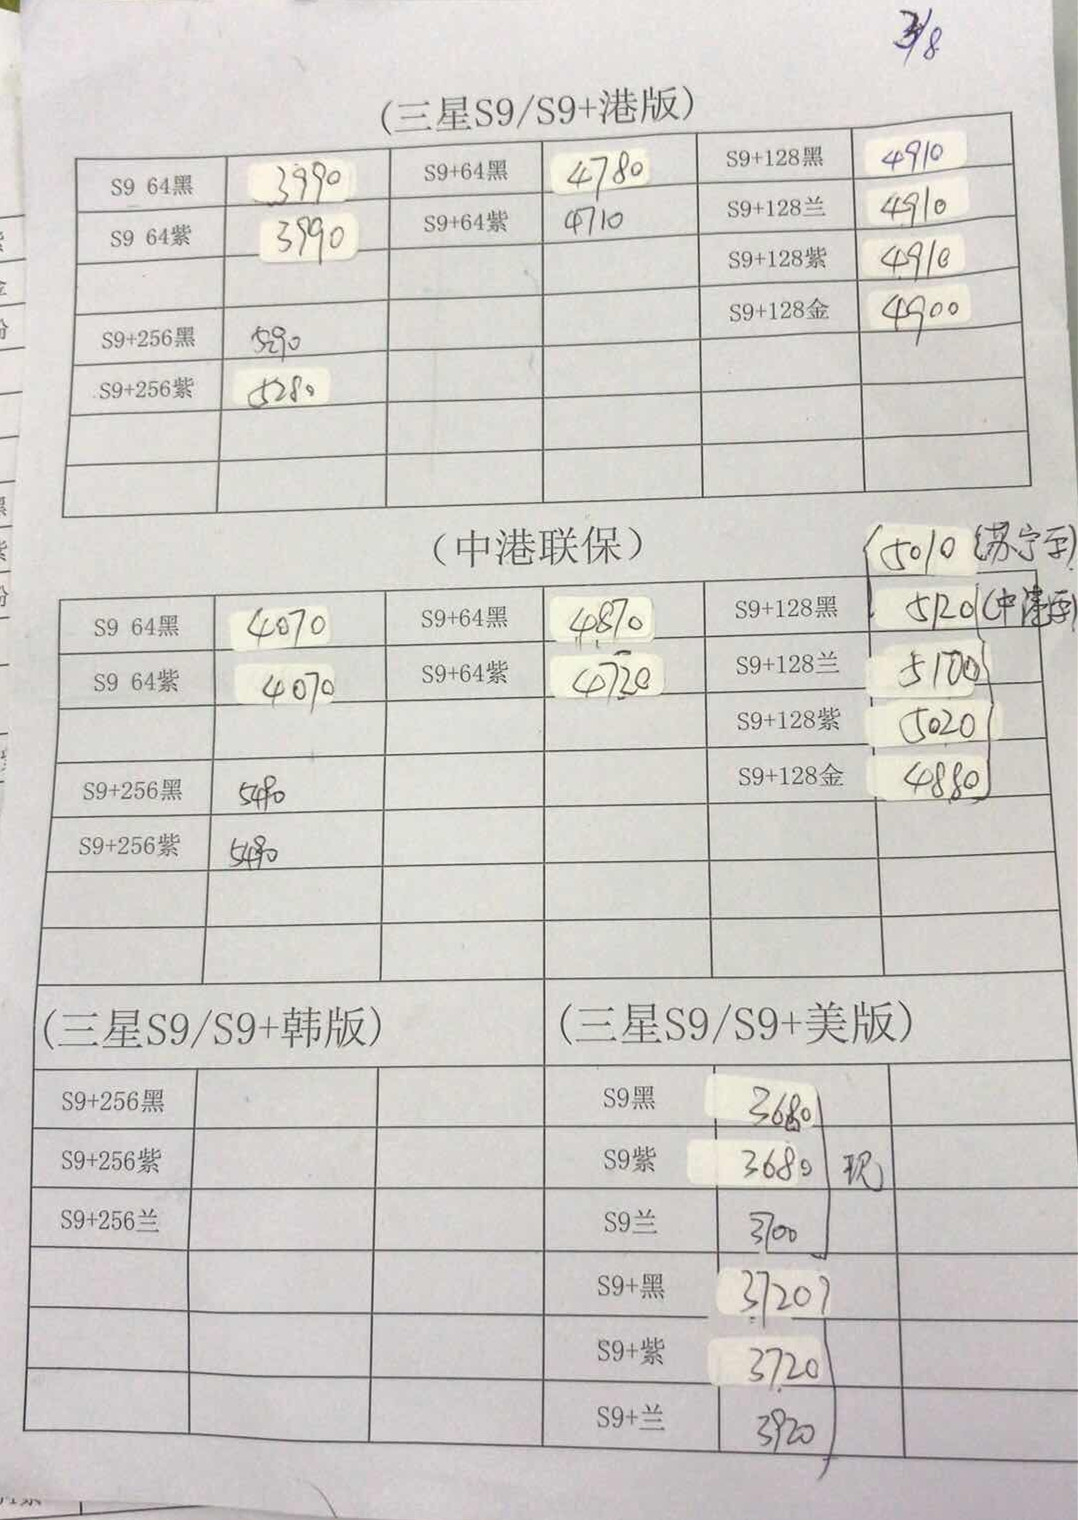 3/8
(三星S9/S9+港版)
S9 64黑 3990 S9+64黑 4780 S9+128黑 4910
S9 64紫 3990 S9+64紫 4710 S9+128兰 4910
S9+128紫 4910
S9+128金 4900
S9+256黑 5290
S9+256紫 5280
(中港联保)
5010 (苏宁
S9 64黑 4070 S9+64黑 4870 S9+128黑 5120
S9 64紫 4070 S9+64紫 4720 S9+128兰 5100
S9+128紫 5020
S9+128金 4880
S9+256黑
S9+256紫
(三星S9/S9+韩版) (三星S9/S9+美版)
S9+256黑 S9黑 3680
S9+256紫 S9紫 3680 现
S9+256兰 S9兰 3700
S9+黑 3720
S9+紫 3720
S9+兰 3920